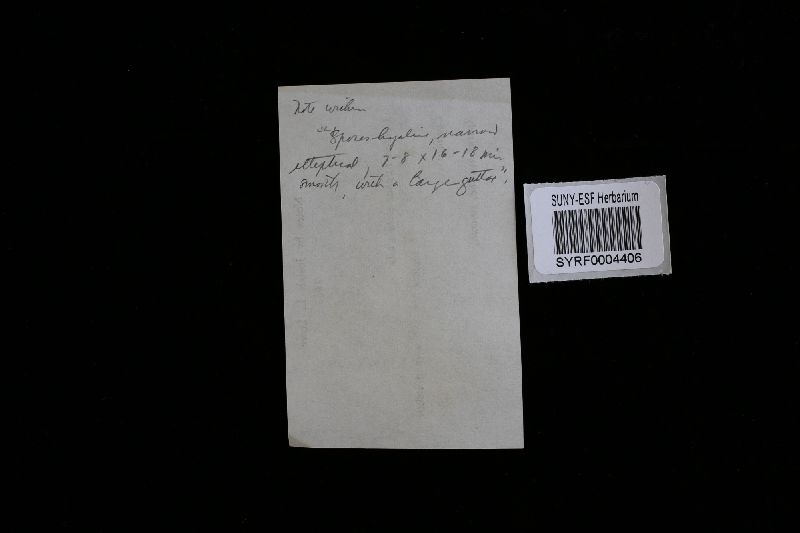 Note written
"Spores hyaline, narrow
elliptical, 7-8 x 16-18 mic.
smooth, with a large gutta".
SUNY-ESF Herbarium
SYRF0004406